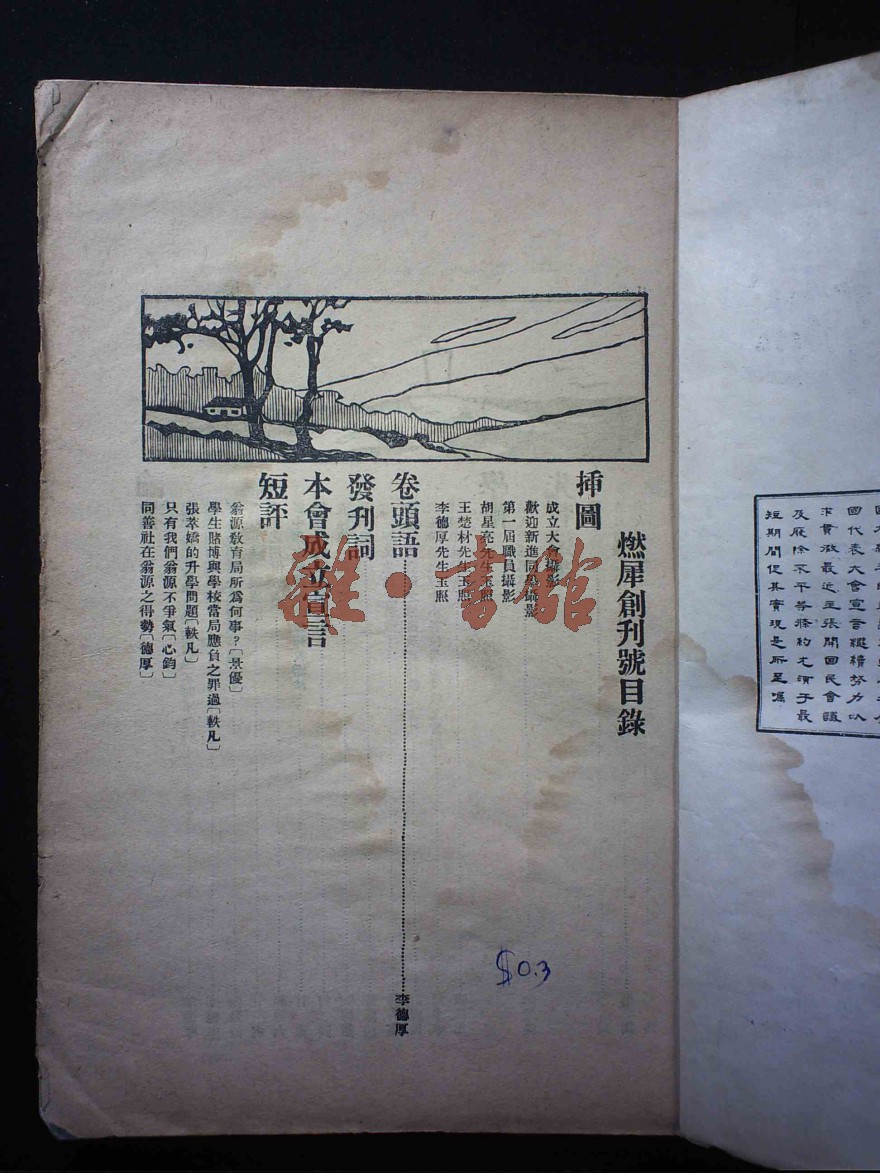 國代表大會宣言繼續努力以
求貫徹最近主張開國民會議
及廢除不平等條約尤須于最
短期間促其實現是所至囑
燃犀創刊號目錄
揷圖
成立大會攝影
歡迎新進同學攝影
第一屆職員攝影
胡星亮先生玉照
王楚材先生玉照
李德厚先生玉照
卷頭語……李德厚
發刊詞
本會成立宣言
短評
翁源敎育局所爲何事?〔景優〕
學生賭博與學校當局應負之罪過〔軼凡〕
張萃嬌的升學問題〔軼凡〕
只有我們翁源不爭氣〔心鈞〕
同善社在翁源之得勢〔德厚〕
雜·書館
$0.3